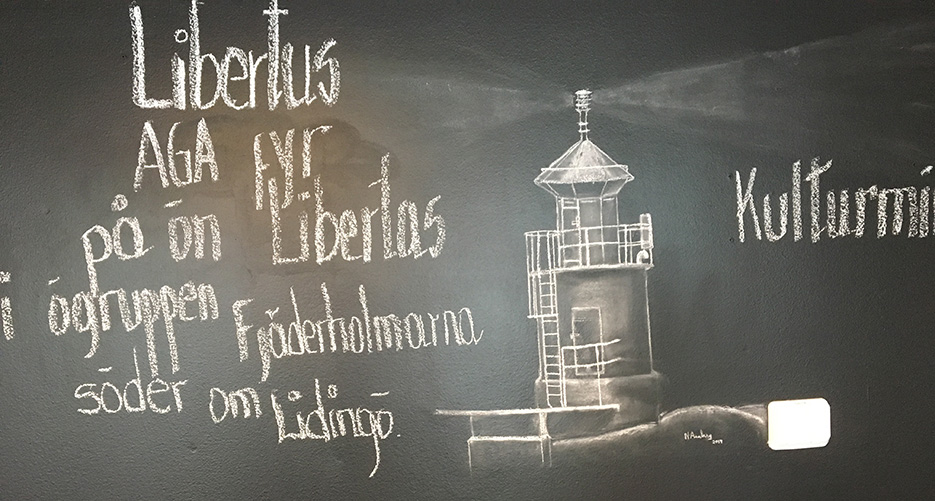 Libertus
AGA fyr
på ön Libertas
i ögruppen Fjäderholmarna
söder om Lidingö.